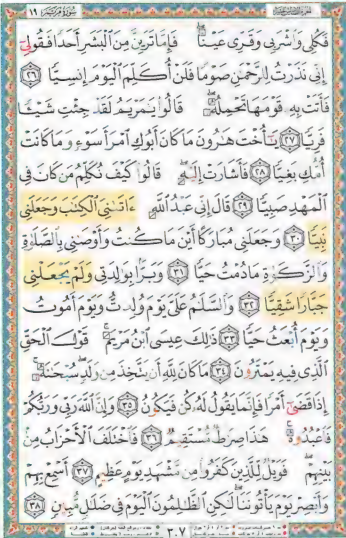 الجزء السادس عشر
سُورَةُ مَرْيَم ١٩
فَكُلِى وَٱشْرَبِى وَقَرِّى عَيْنًا ۖ فَإِمَّا تَرَيِنَّ مِنَ ٱلْبَشَرِ أَحَدًا فَقُولِىٓ
إِنِّى نَذَرْتُ لِلرَّحْمَٰنِ صَوْمًا فَلَنْ أُكَلِّمَ ٱلْيَوْمَ إِنسِيًّا ﴿٢٦﴾
فَأَتَتْ بِهِۦ قَوْمَهَا تَحْمِلُهُۥ ۖ قَالُوا۟ يَٰمَرْيَمُ لَقَدْ جِئْتِ شَيْـًٔا
فَرِيًّا ﴿٢٧﴾ يَٰٓأُخْتَ هَٰرُونَ مَا كَانَ أَبُوكِ ٱمْرَأَ سَوْءٍ وَمَا كَانَتْ
أُمُّكِ بَغِيًّا ﴿٢٨﴾ فَأَشَارَتْ إِلَيْهِ ۖ قَالُوا۟ كَيْفَ نُكَلِّمُ مَن كَانَ فِى
ٱلْمَهْدِ صَبِيًّا ﴿٢٩﴾ قَالَ إِنِّى عَبْدُ ٱللَّهِ ءَاتَىٰنِىَ ٱلْكِتَٰبَ وَجَعَلَنِى
نَبِيًّا ﴿٣٠﴾ وَجَعَلَنِى مُبَارَكًا أَيْنَ مَا كُنتُ وَأَوْصَٰنِى بِٱلصَّلَوٰةِ
وَٱلزَّكَوٰةِ مَا دُمْتُ حَيًّا ﴿٣١﴾ وَبَرًّۢا بِوَٰلِدَتِى وَلَمْ يَجْعَلْنِى
جَبَّارًا شَقِيًّا ﴿٣٢﴾ وَٱلسَّلَٰمُ عَلَىَّ يَوْمَ وُلِدتُّ وَيَوْمَ أَمُوتُ
وَيَوْمَ أُبْعَثُ حَيًّا ﴿٣٣﴾ ذَٰلِكَ عِيسَى ٱبْنُ مَرْيَمَ ۚ قَوْلَ ٱلْحَقِّ
ٱلَّذِى فِيهِ يَمْتَرُونَ ﴿٣٤﴾ مَا كَانَ لِلَّهِ أَن يَتَّخِذَ مِن وَلَدٍ ۖ سُبْحَٰنَهُۥٓ ۚ
إِذَا قَضَىٰٓ أَمْرًا فَإِنَّمَا يَقُولُ لَهُۥ كُن فَيَكُونُ ﴿٣٥﴾ وَإِنَّ ٱللَّهَ رَبِّى وَرَبُّكُمْ
فَٱعْبُدُوهُ ۚ هَٰذَا صِرَٰطٌ مُّسْتَقِيمٌ ﴿٣٦﴾ فَٱخْتَلَفَ ٱلْأَحْزَابُ مِنۢ
بَيْنِهِمْ ۖ فَوَيْلٌ لِّلَّذِينَ كَفَرُوا۟ مِن مَّشْهَدِ يَوْمٍ عَظِيمٍ ﴿٣٧﴾ أَسْمِعْ بِهِمْ
وَأَبْصِرْ يَوْمَ يَأْتُونَنَا ۖ لَٰكِنِ ٱلظَّٰلِمُونَ ٱلْيَوْمَ فِى ضَلَٰلٍ مُّبِينٍ ﴿٣٨﴾
٣٠٧